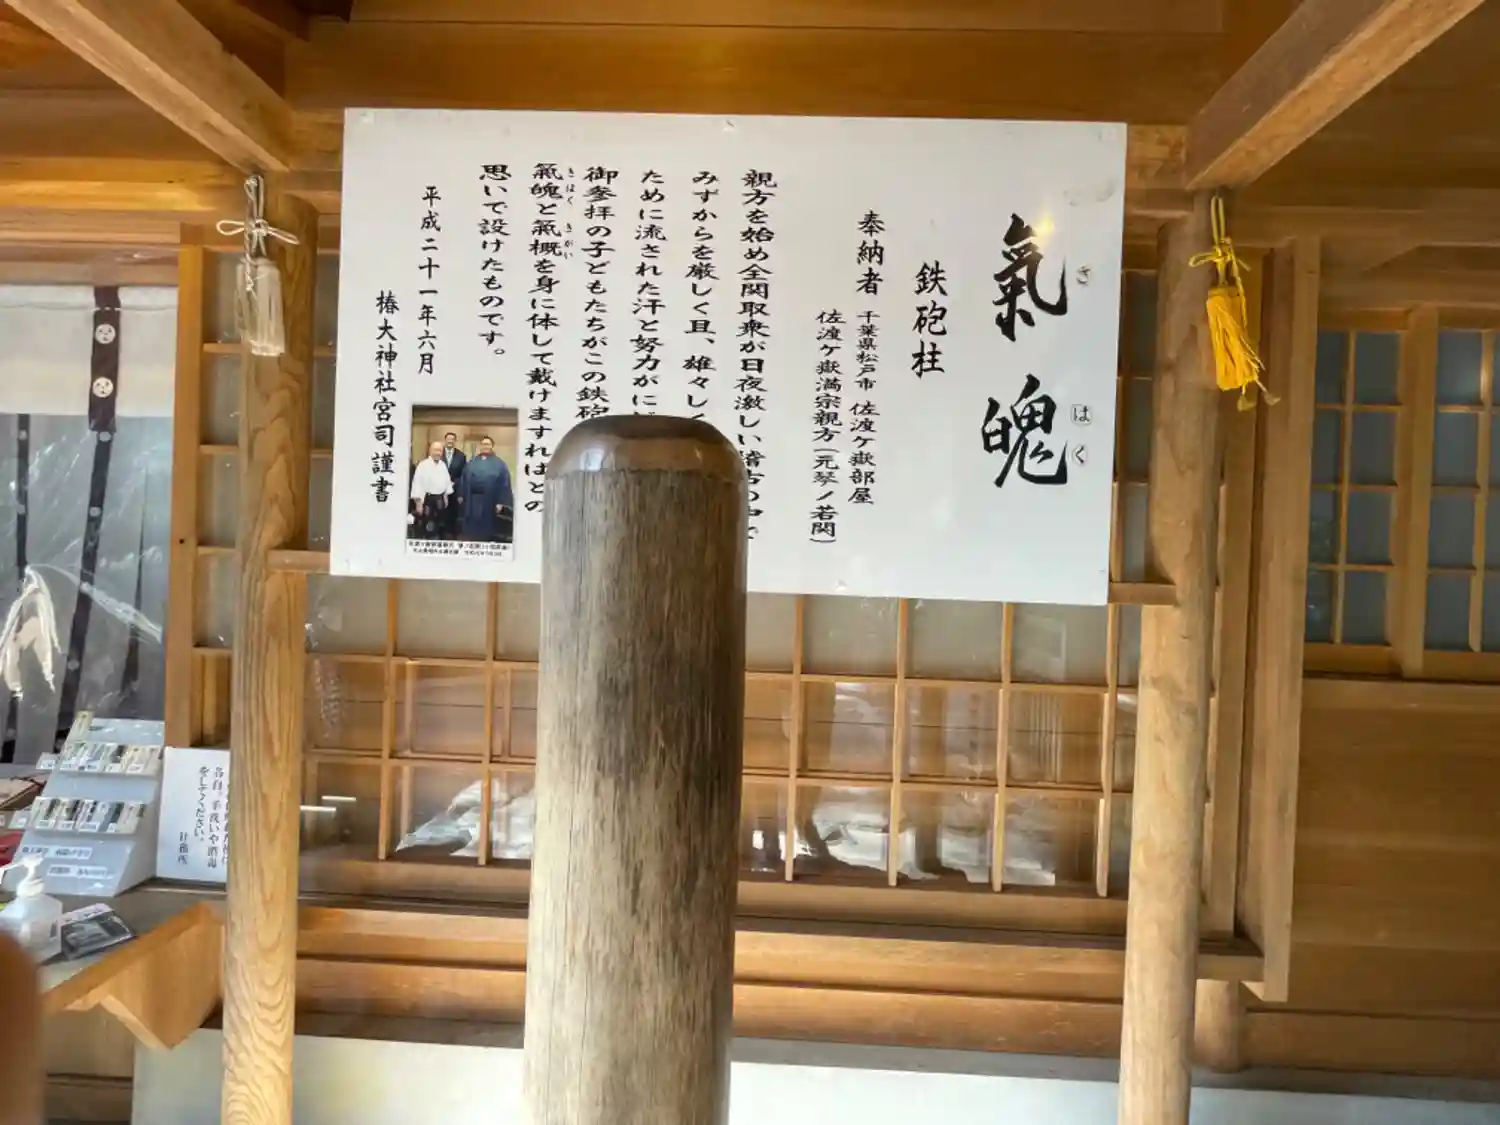 氣魄
きはく
鉄砲柱
奉納者 千葉県松戸市 佐渡ケ嶽部屋
佐渡ケ嶽満宗親方(元琴ノ若関)
親方を始め全関取衆が日夜激しい稽古の中で
みずからを厳しく且、雄々しく
ために流された汗と努力がに
御参拝の子どもたちがこの鉄砲
氣魄と氣概を身に体して戴けますればとの
きはく きがい
思いで設けたものです。
平成二十一年六月
椿大神社宮司謹書
各自。手洗いや消毒
をしてください。